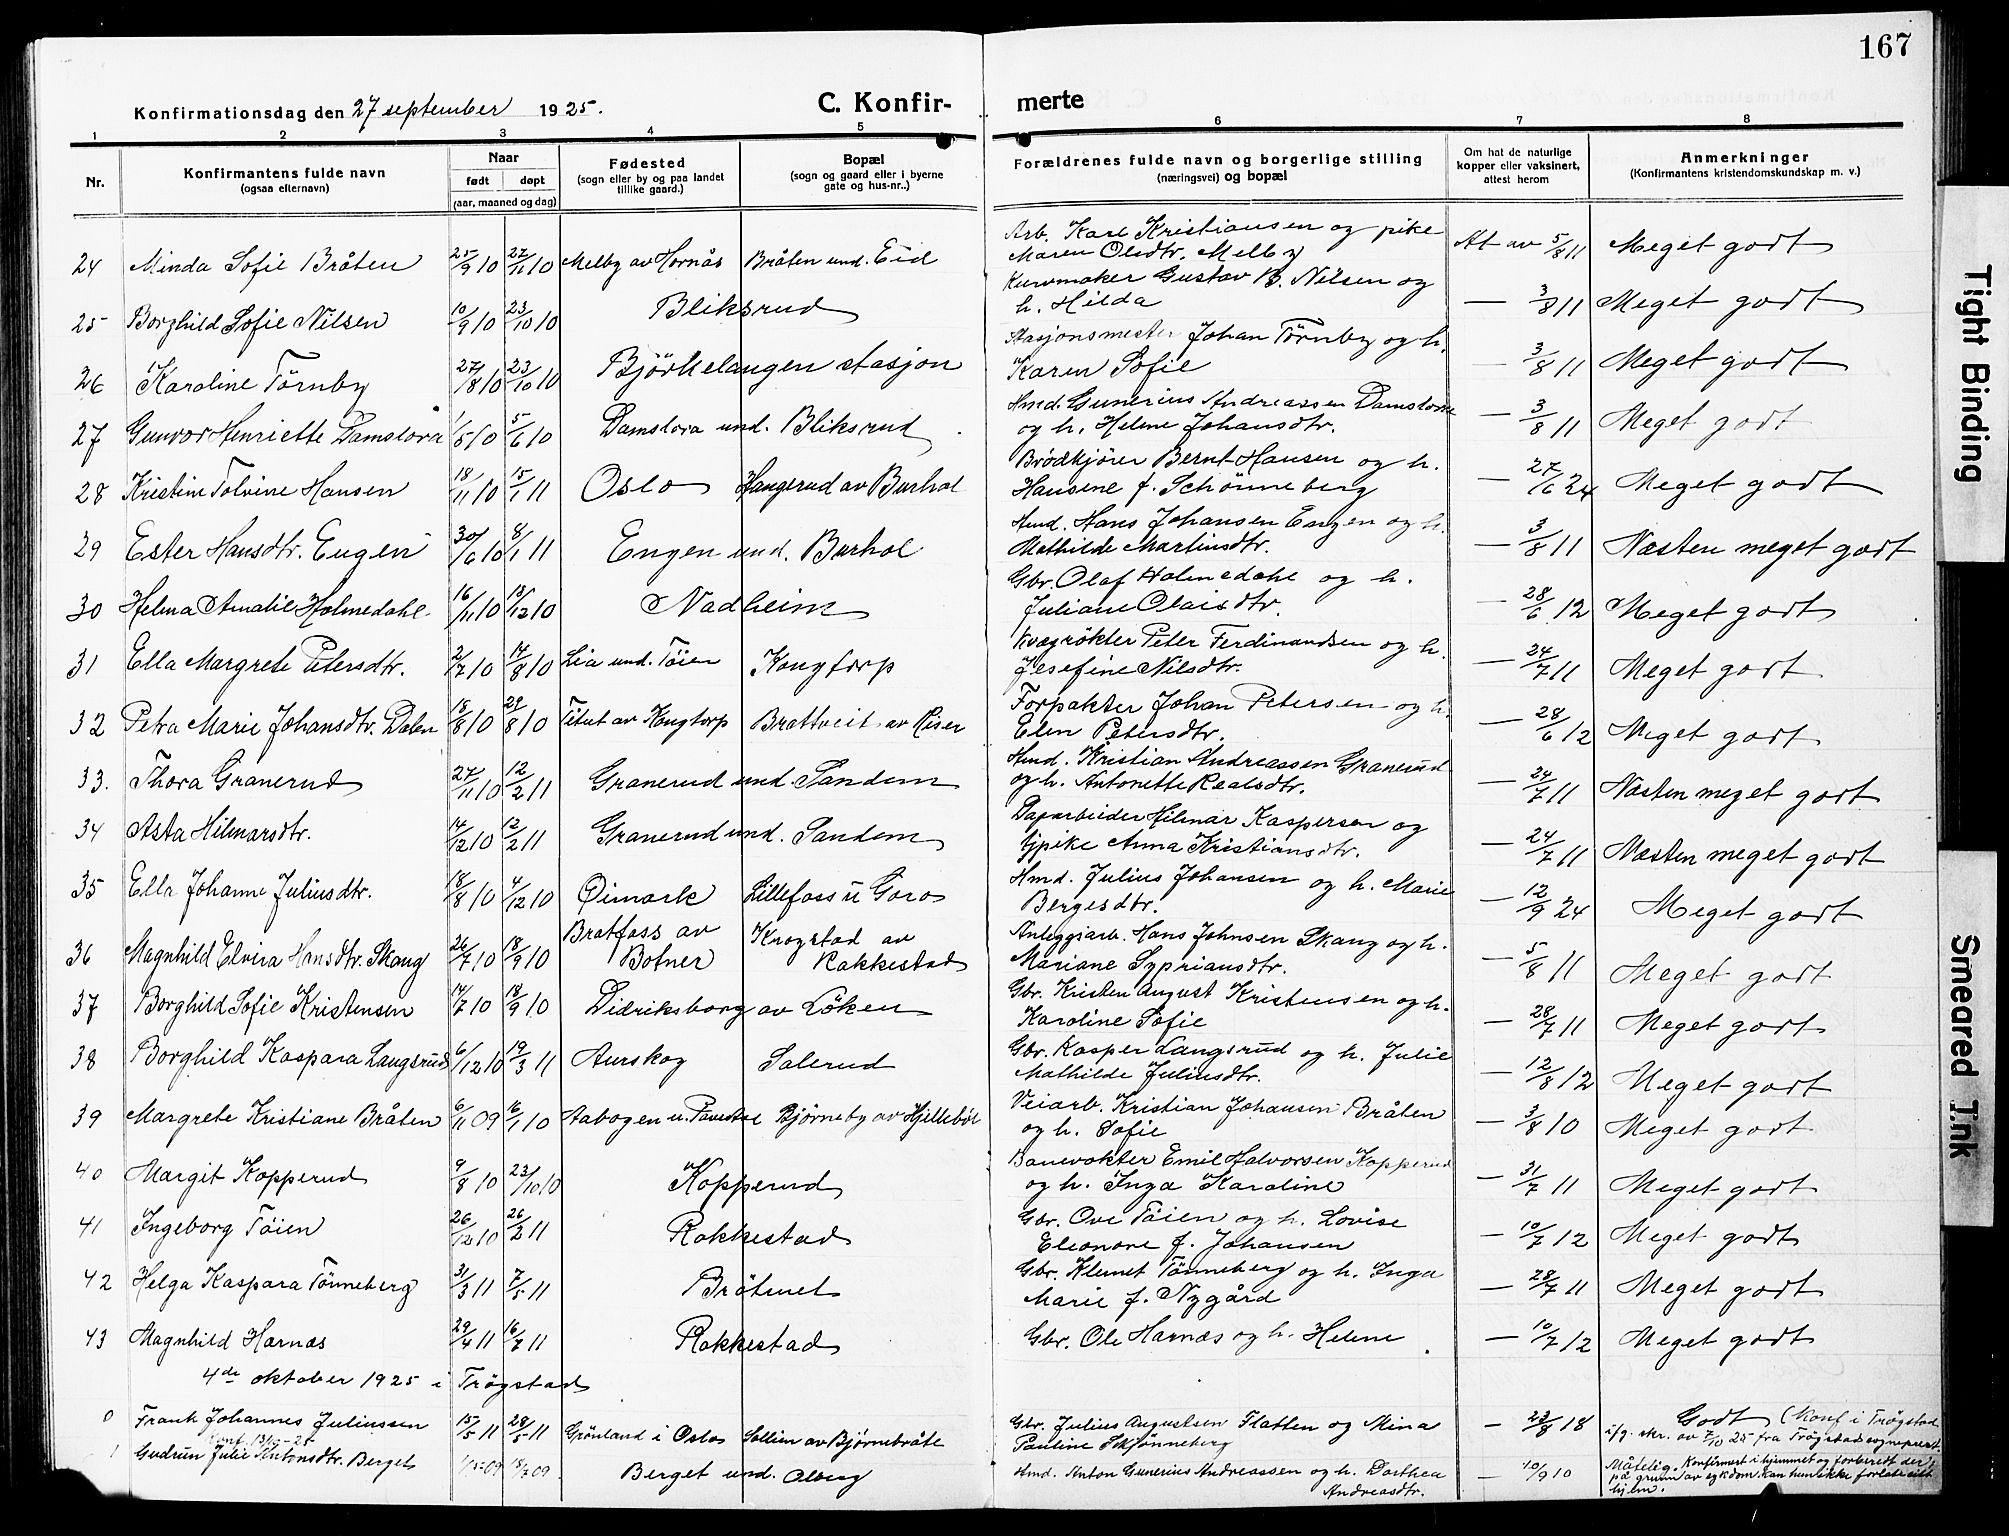 167
Konfirmationsdag den 27 september 1925.
C. Konfir-
merte
1 2 3 4 5 6 7 8
Nr.
Konfirmantens fulde navn
(ogsaa efternavn)
Naar
født døpt
(aar, maaned og dag)
Fødested
(sogn eller by og paa landet
tillike gaard.)
Bopæl
(sogn og gaard eller i byerne
gate og hus-nr.,)
Forældrenes fulde navn og borgerlige stilling
(næringsvei) og bopæl
Om hat de naturlige
kopper eller vaksinert,
attest herom
Anmerkninger
(Konfirmantens kristendomskundskap m. v.)
Arb. Karl Kristiansen og pike
24 Minda Sofie Bråten 25/9 10 27/11 10 Melby av Hornås Bråten und. Eid Maren Olsdtr. Melby At av 5/8 11 Meget godt
Kurvmaker Gustav B. Nilsen og
25 Borghild Sofie Nilsen 10/9 10 23/10 10 Bliksrud h. Hilda — 3/8 11 Meget godt
Stasjonsmester Johan Törnby og h.
26 Karoline Törnby 27/8 10 23/10 10 Björkelangen stasjon Karen Sofie — 3/8 11 Meget godt
Hmd. Gunerius Andreassen Damslora
27 Gunvor Henriette Damslora 1/5 10 5/6 10 Damslora und. Bliksrud og h. Helene Johansdtr. — 3/8 11 Meget godt
Brödkjörer Bernt Hansen og h.
28 Kristine Tolvine Hansen 18/11 10 15/1 11 Oslo Haugerud av Burhol Hansene f. Schönneberg — 27/6 24 Meget godt
Hmd. Hans Johansen Engen og h.
29 Ester Hansdtr. Engen 30/6 10 8/1 11 Engen und. Burhol Mathilde Martinsdtr. — 3/8 11 Næsten meget godt
Gbr. Olaf Holmedahl og h.
30 Helma Amalie Holmedahl 16/11 10 18/12 10 Nadheim Juliane Olaisdtr. — 28/6 12 Meget godt
Kvægrökter Peter Ferdinandsen og h.
31 Ella Margrete Petersdtr. 2/7 10 14/8 10 Lia und. Töien Kongtorp Josefine Nilsdtr. — 24/7 11 Meget godt
Forpakter Johan Petersen og h.
32 Petra Marie Johansdtr. Dalen 18/8 10 28/8 10 av Kongtorp Brattveit av Riser Elen Petersdtr. — 28/6 12 Meget godt
Hmd. Kristian Andreassen Granerud
33. Thora Granerud 27/11 10 12/2 11 Granerud und. Sandem og h. Antonette Realsdtr. — 24/7 11 Næsten meget godt
Dagarbeider Hilmar Kaspersen og
34 Asta Hilmarsdtr. 14/12 10 12/2 11 Granerud und. Sandem tjpike Anna Kristiansdtr. — 24/7 11 Næsten meget godt
Hmd. Julius Johansen og h. Marie
35 Ella Johanne Juliusdtr. 18/8 10 4/12 10 Øimark Lillefoss u Goro Bergesdtr. — 12/9 24 Meget godt
Bratfoss av Krogstad av Anleggsarb. Hans Johnsen Skaug og h.
36 Magnhild Elvira Hansdtr. Skaug 26/7 10 18/9 10 Botner Rakkestad Mariane Sypriansdtr. — 5/8 11 Meget godt
Gbr. Kristen August Kristensen og h.
37 Borghild Sofie Kristensen 14/7 10 18/9 10 Didriksborg av Löken Karoline Sofie — 28/7 11 Meget godt
Gbr. Kasper Langsrud og h. Julie
38 Borghild Kaspara Langsrud 6/12 10 19/3 11 Aurskog Salerud Mathilde Juliusdtr. — 12/8 12 Meget godt
Veiarb. Kristian Johansen Bråten
39 Margrete Kristiane Bråten 6/11 09 16/1 10 Aabogen u. Bjørneby av Hjellebøl og h. Sofie — 3/8 10 Meget godt
Banevokter Emil Halvorsen Kopperud
40 Margit Kopperud 9/8 10 23/10 10 Kopperud og h. Inga Karoline — 31/7 11 Meget godt
Gbr. Ove Töien og h. Lovise
41 Ingeborg Töien 26/12 10 26/2 11 Rakkestad Eleonore f. Johansen — 10/7 12 Meget godt
Gbr. Klemet Tönneberg og h. Inga
42 Helga Kaspara Tönneberg 31/3 11 7/5 11 Bråtnet Marie f. Nygård — 28/7 11 Meget godt
43 Magnhild Harnæs 29/4 11 16/7 11 Rakkestad Gbr. Ole Harnæs og h. Helene — 10/7 12 Meget godt
4de oktober 1925 i Trögstad
0 Frank Johannes Juliussen 15/5 11 28/5 11 Grönland i Oslo Sollien av Bjørnebråte Gbr. Julius Augustsen Flatten og Mina — 23/8 18 Godt (Konf i Trögstad
Pauline Skjönneberg iflg. skr. av 7/10 25 fra Trögstad sogneprest.
Konf. 13/10-25
1 Gudrun Julie Antonsdtr. Berget 1/5 09 18/7 09 Berget und. Olberg Hmd. Anton Gunerius Andreassen og h. Dorthea — 10/9 10 Måtelig. Konfirmert i hjemmet og forberedt der,
Andreasdtr. på grunn av sykdom. Kan hun ikke forlate sitt
hjem.
Tight Binding
Smeared Ink